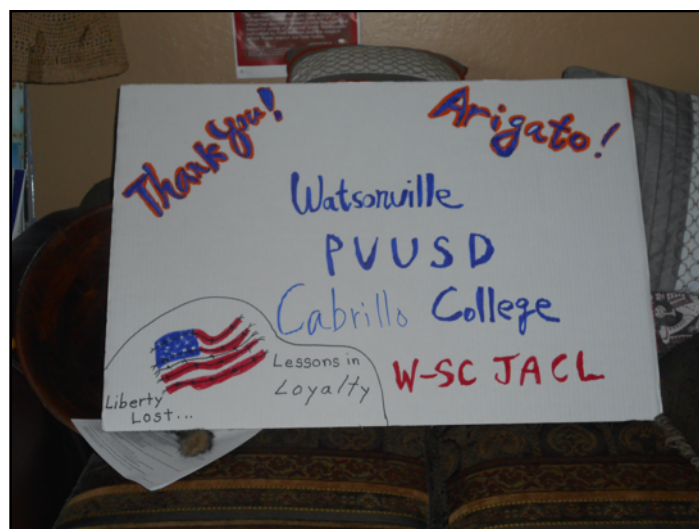 Thank You!
Arigato!
Watsonville
PVUSD
Cabrillo College
W-SC JACL
Liberty
Lost...
Lessons in
Loyalty